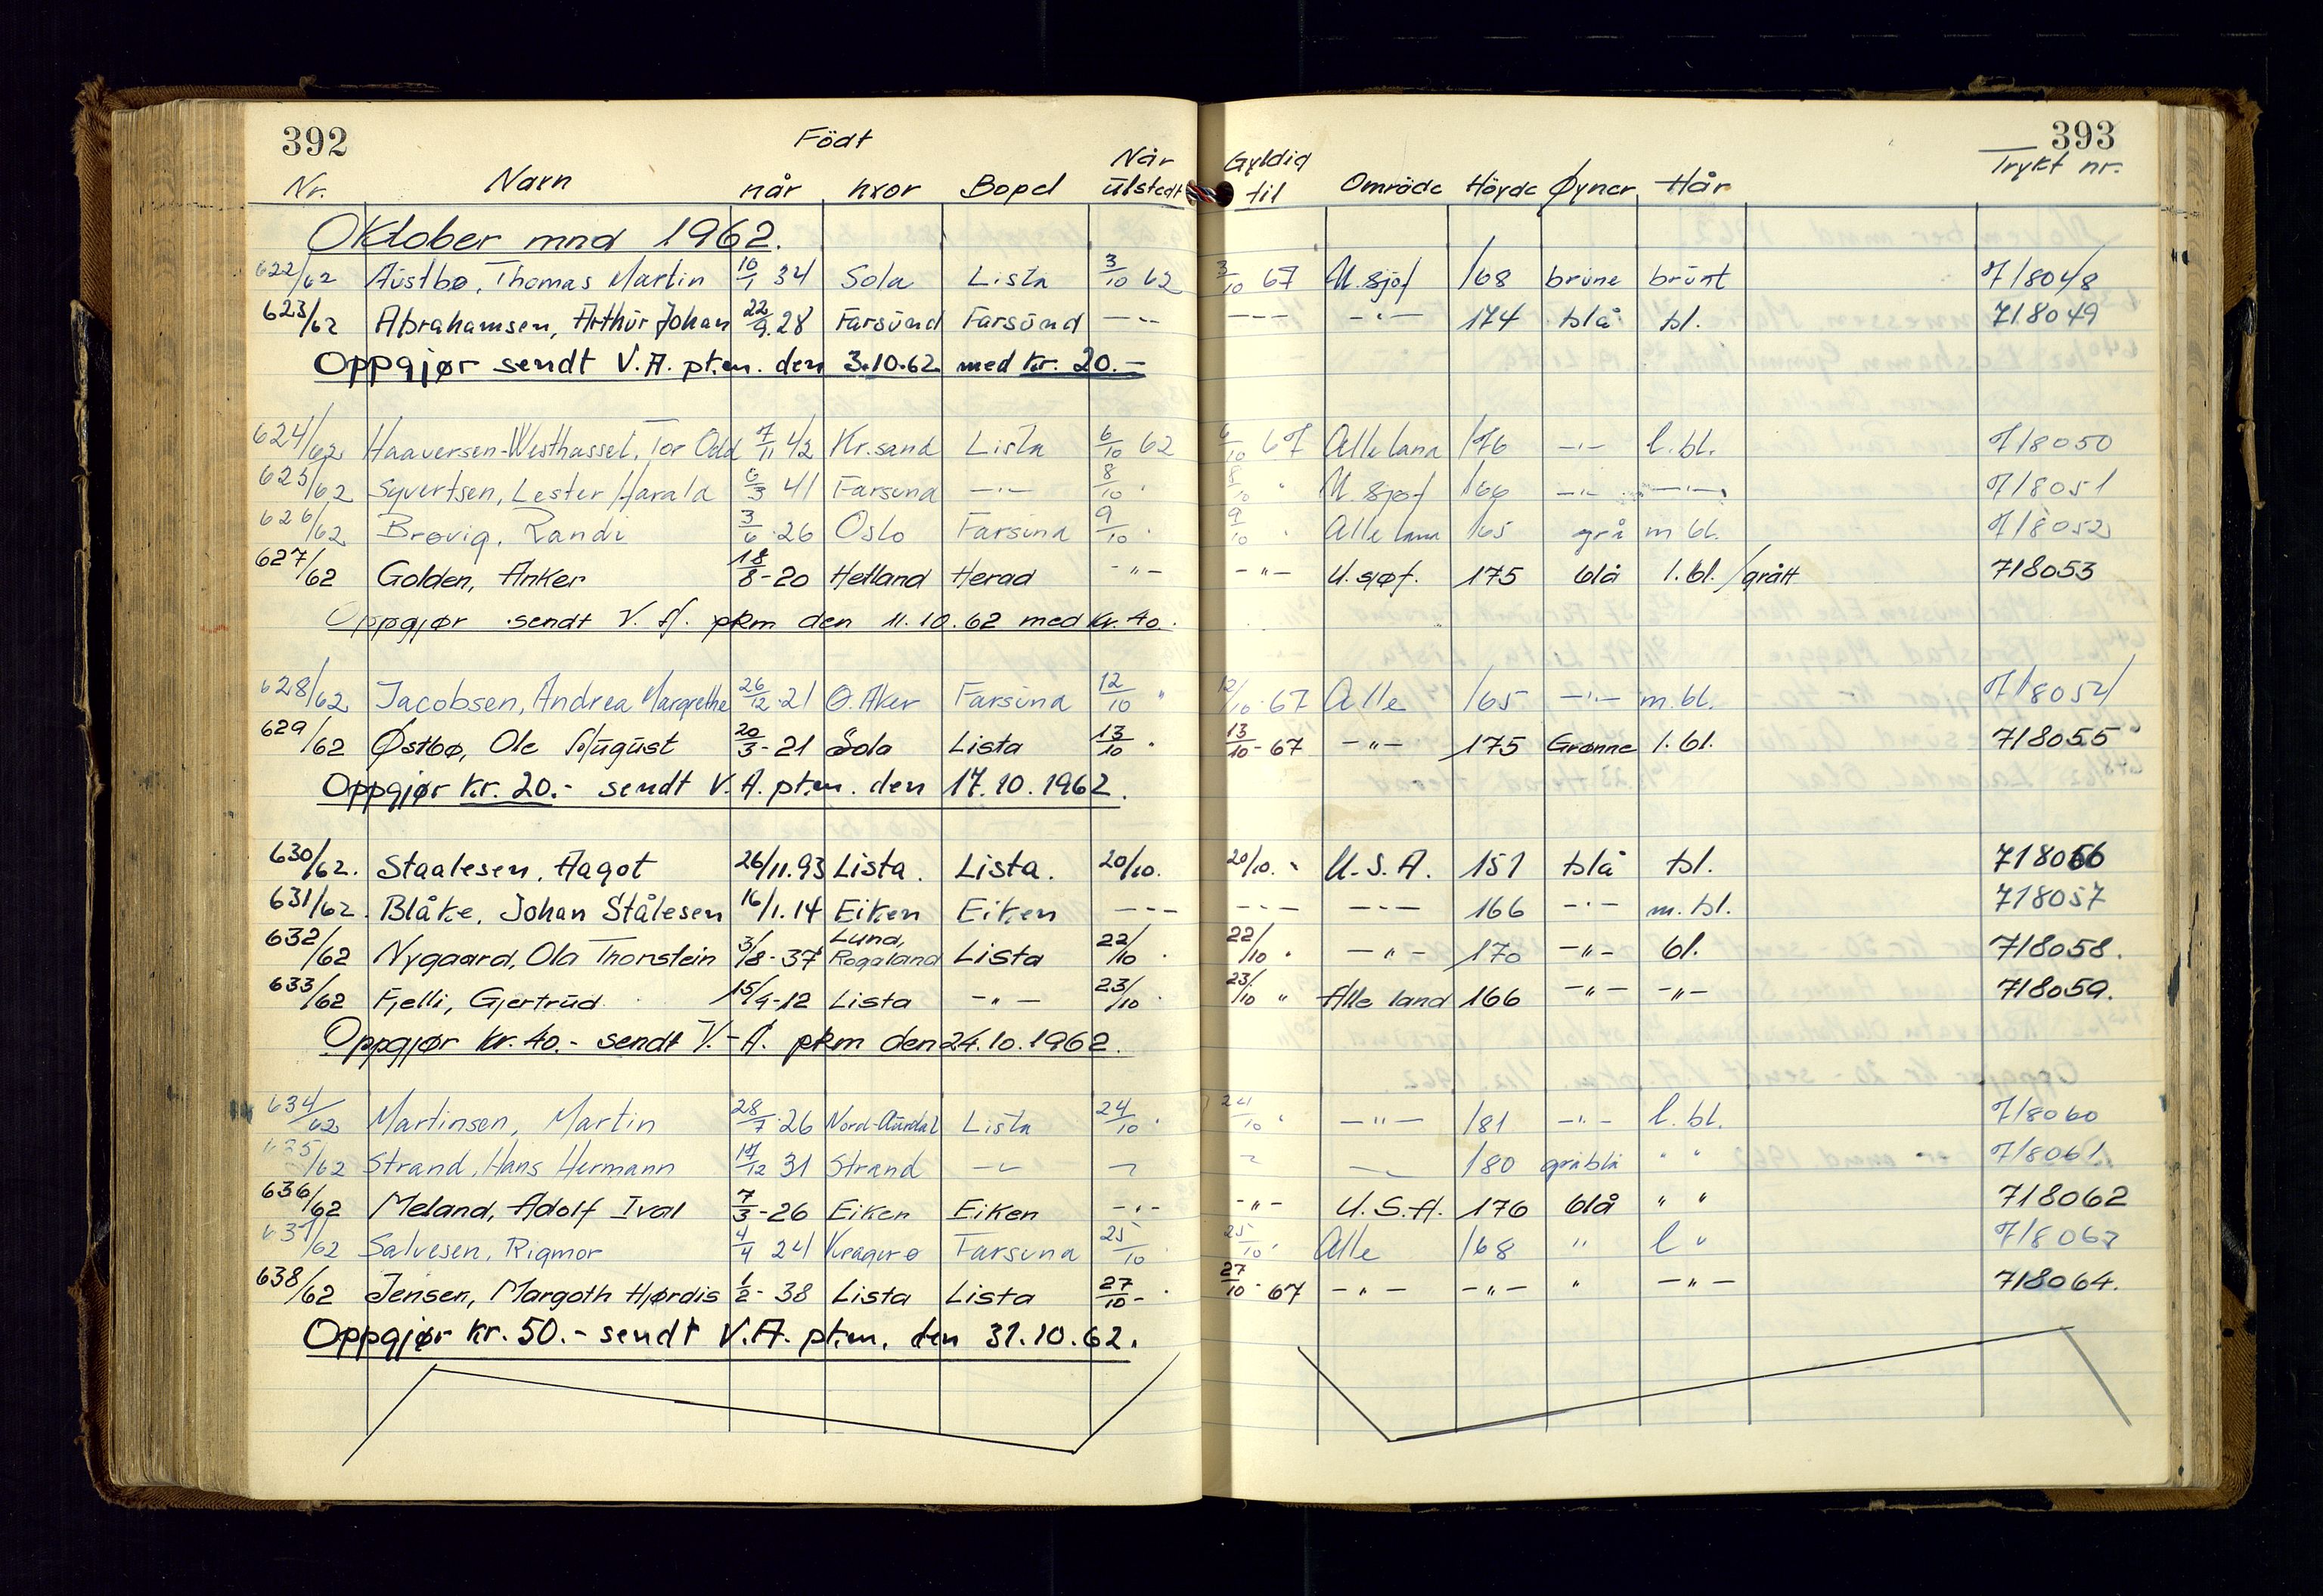 392 393
Födt
Nr. Navn når hvor Bopel Når utstedt Gyldig til Område Höyde Øyner Hår Trykt nr.
Oktober mnd 1962.
622/62 Austbø, Thomas Martin 10/1 34 Sola Lista 3/10 62 3/10 67 U. sjøf 168 brune brunt 718048
623/62 Abrahamsen, Arthur Johan 22/9.28 Farsund Farsund —"— —"— —"— 174 blå bl. 718049
Oppgjør sendt V.A. pkm. den 3.10.62 med kr. 20.—
624/62 Haaversen-Westhassel, Tor Odd 7/11 42 Kr.sand Lista 6/10 62 6/10 67 Alle land 176 —"— l.bl. 718050
625/62 Syvertsen, Lester Harald 6/3 41 Farsund —"— 8/10 " 8/10 " U. sjøf 166 —"— —"— 718051
626/62 Brøvig, Randi 3/6 26 Oslo Farsund 9/10 " 9/10 " Alle land 165 grå m bl. 718052
627/62 Golden, Anker 18/8-20 Hetland Herad -"- -"- U.sjøf. 175 blå l.bl./grått 718053
Oppgjør sendt V. A. pkm den 11.10.62 med kr. 40.
628/62 Jacobsen, Andrea Margrethe 26/12.21 Ø. Aker Farsund 12/10 " 12/10.67 Alle 165 —"— m.bl. 718054
629/62 Østbø, Ole August 20/3-21 Sola Lista 13/10 " 13/10-67 -"- 175 Grønne l.bl. 718055
Oppgjør kr. 20.- sendt V.A. pkm. den 17.10.1962.
630/62. Staalesen, Aagot 26/11.93 Lista. Lista. 20/10. 20/10. " U.S.A. 151 blå bl. 718056
631/62. Blåke, Johan Stålesen 16/1.14 Eiken Eiken —"— —"— —"— 166 —"— m.bl. 718057
632/62 Nygaard, Ola Thorstein 3/8-37 Lund, Rogaland Lista 22/10 " 22/10 " -"- 170 -"- bl. 718058.
633/62 Fjelli, Gjertrud 15/9-12 Lista -"- 23/10 " 23/10 " Alle land 166 -"- -"- 718059.
Oppgjør kr. 40.- sendt V.-A. pkm den 24.10.1962.
634/62 Martinsen, Martin 28/7.26 Nord-Aurdal Lista 24/10 " 24/10 " —"— 181 -"- l.bl. 718060
635/62 Strand, Hans Hermann 17/12 31 Strand —"— —"— —"— —"— 180 gråblå " " 718061
636/62 Meland, Adolf Ival 7/3-26 Eiken Eiken -"- -"- U.S.A. 176 blå " " 718062
637/62 Salvesen, Rigmor 4/4 24 Kragerø Farsund 25/10 " 25/10 " Alle 168 " l " 718063
638/62 Jensen, Margoth Hjørdis 1/2-38 Lista Lista 27/10- " 27/10-67 -"- -"- " -"- 718064.
Oppgjør kr. 50.- sendt V.A. pkm. den 31.10.62.